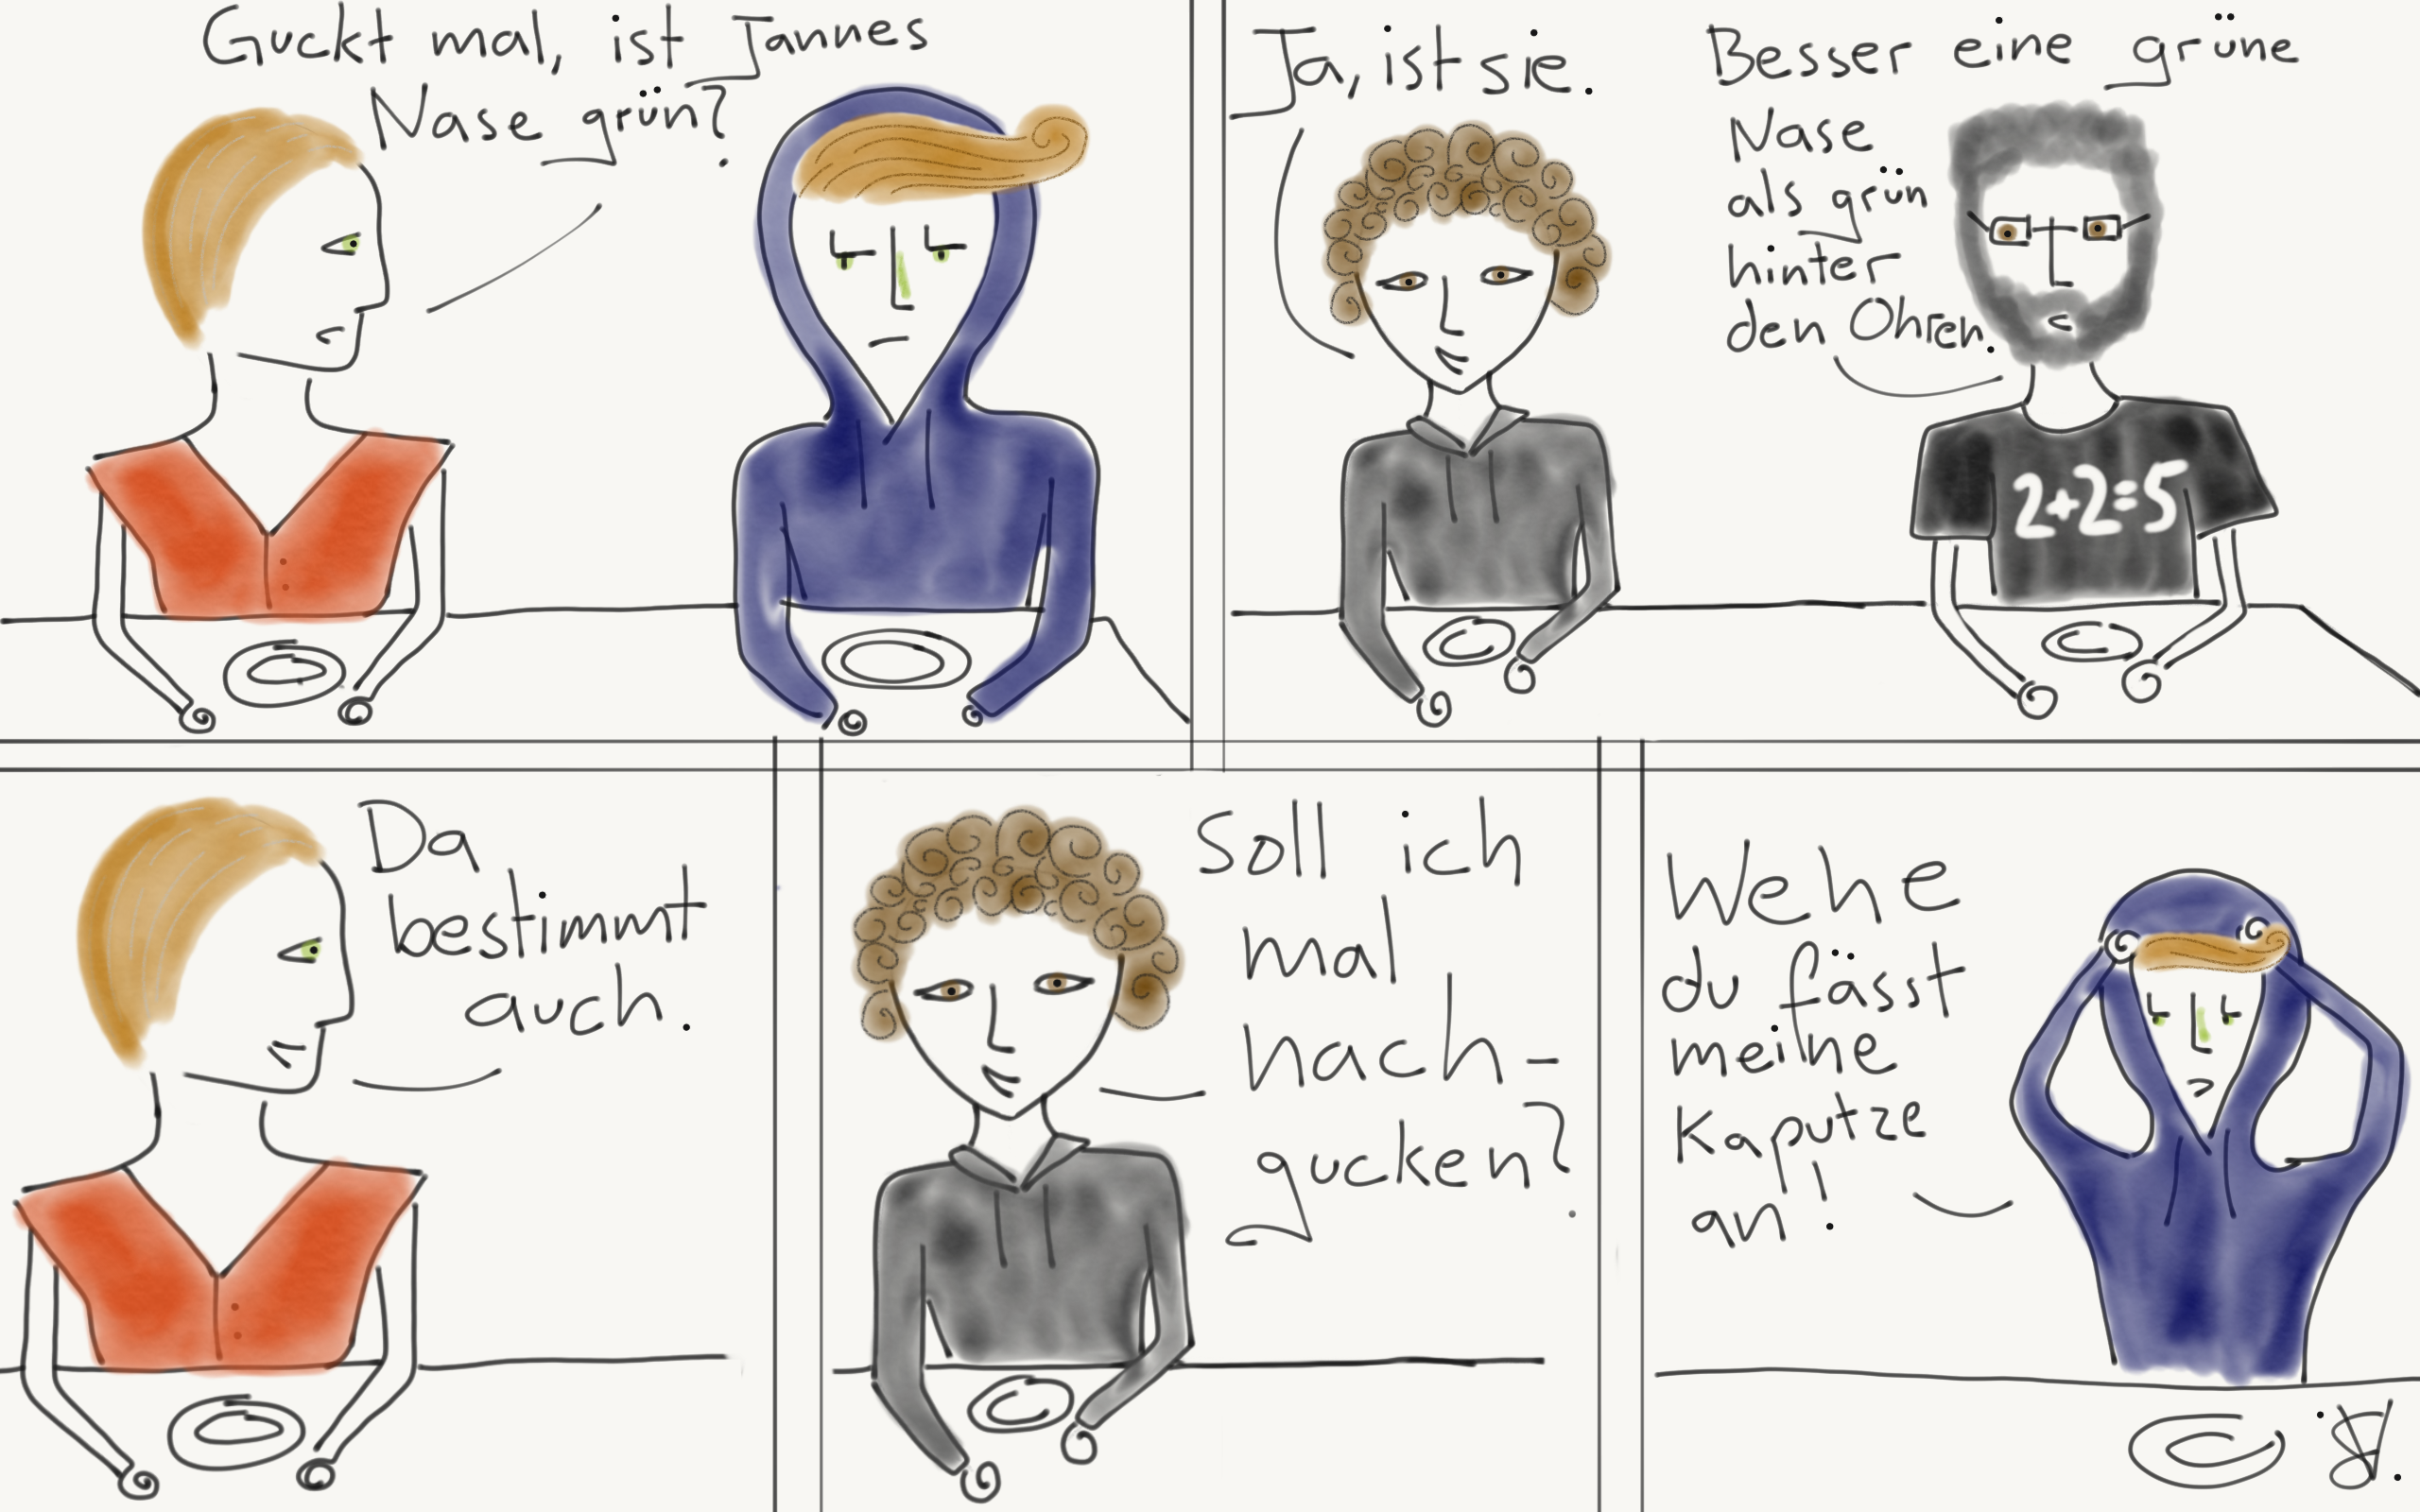 Guckt mal, ist Jannes
Nase grün?
Ja, ist sie.
Besser eine grüne
Nase
als grün
hinter
den Ohren.
2+2=5
Da
bestimmt
auch.
Soll ich
mal
nach-
gucken?
Wehe
du fässt
meine
Kaputze
an!